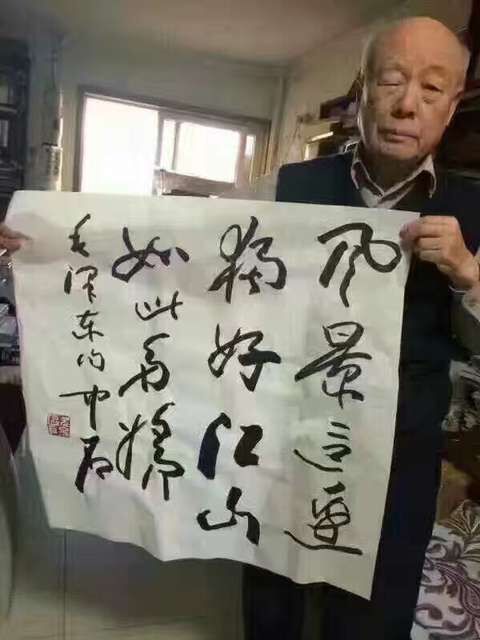 风景这边
独好江山
如此多娇
毛泽东句 中石